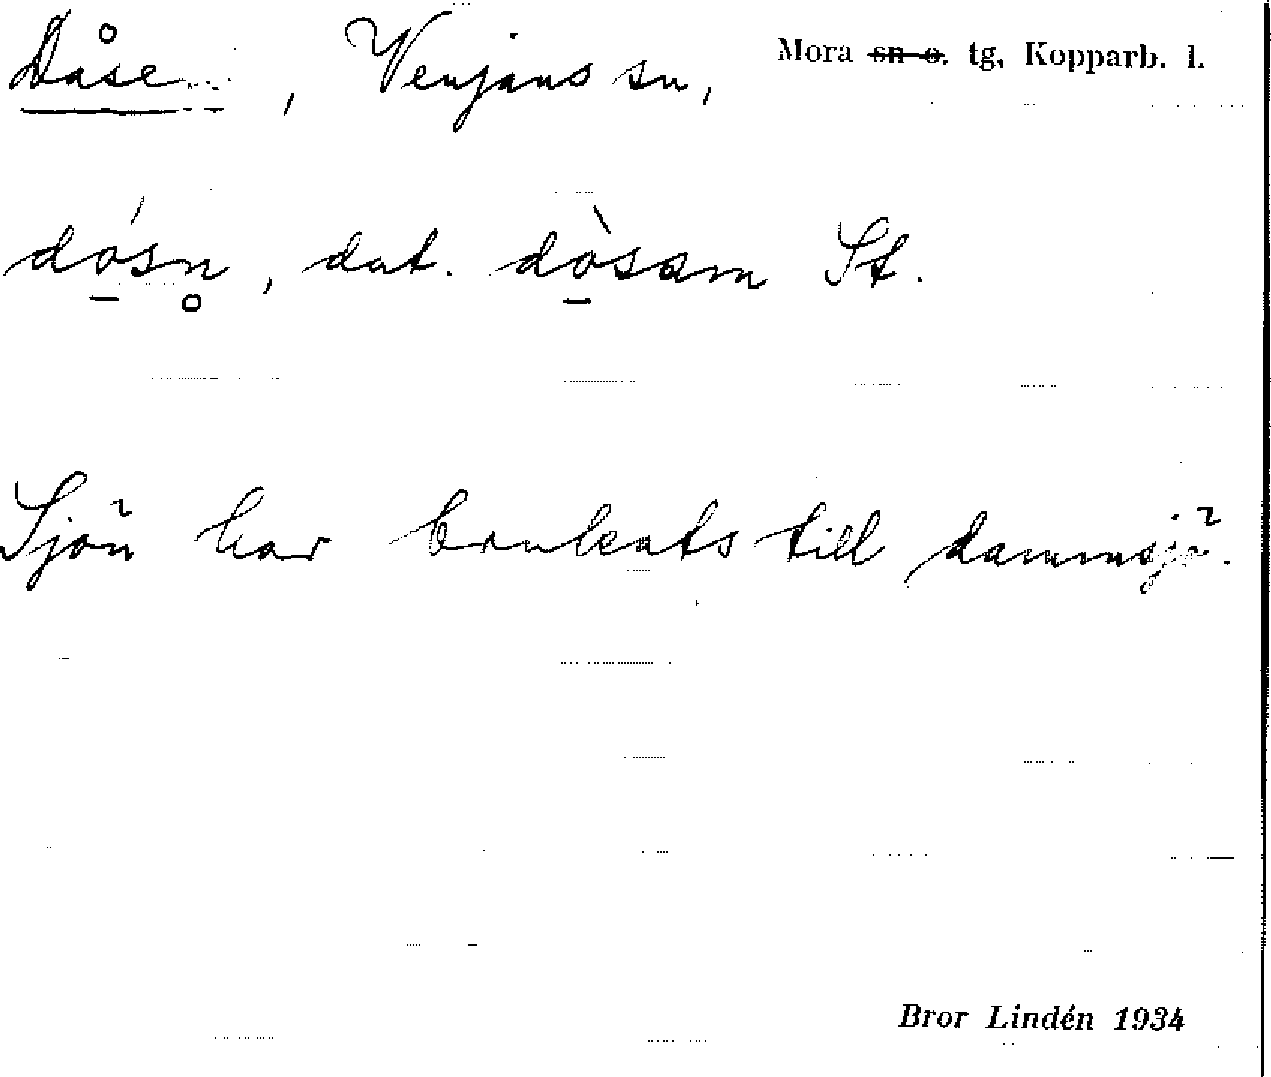 Dåse, Venjans sn, Mora sn o. tg, Kopparb. l.
dó̱sn̥, dat. dò̱sam St.
Sjön har brukats till dammsjö.
Bror Lindén 1934